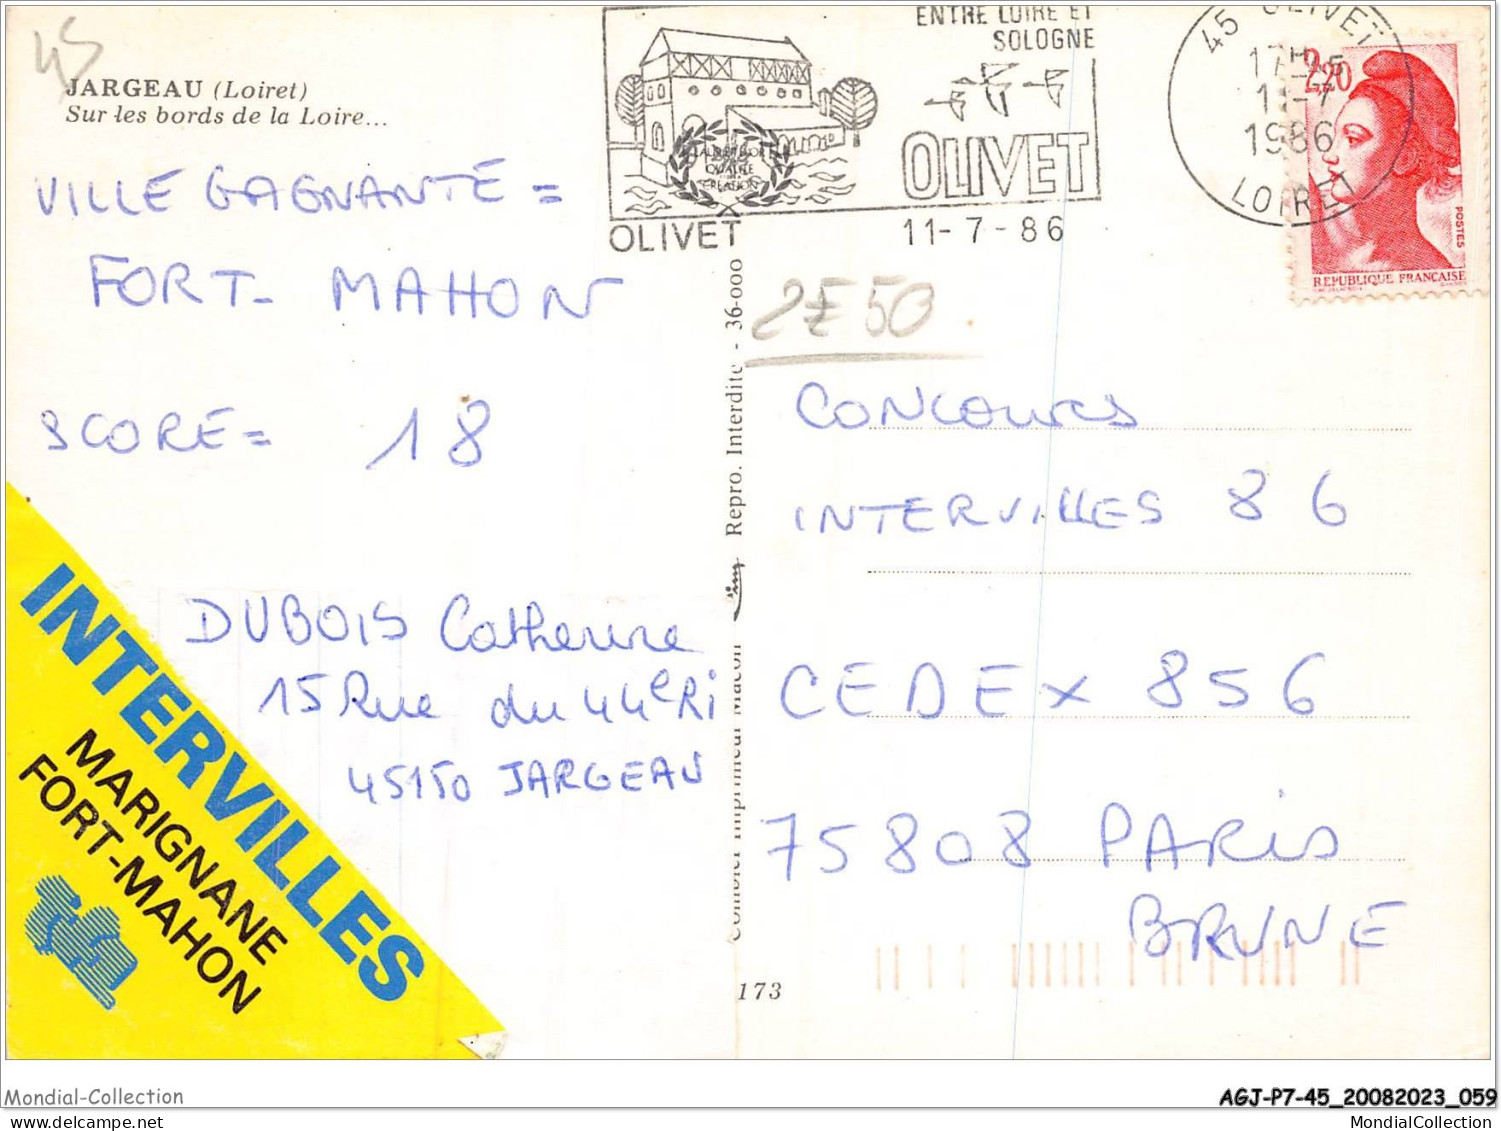 45
JARGEAU (Loiret)
Sur les bords de la Loire...
VILLE GAGNANTE =
FORT- MAHON
SCORE = 18
DUBOIS Catherine
15 Rue du 44e RI
45150 JARGEAU
INTERVILLES
MARIGNANE
FORT-MAHON
ENTRE LOIRE ET
SOLOGNE
OLIVET
QUALITE
CREATION
OLIVET
11-7-86
45 OLIVET
17H15
11-7
1986
LOIRET
2,20
POSTES
REPUBLIQUE FRANÇAISE
2E50
Combier Imprimeur Macon
Repro. Interdite - 36-000
173
CONCOURS
INTERVILLES 86
CEDEX 856
75808 PARIS
BRUNE
Mondial-Collection
AGJ-P7-45_20082023_059
MondialCollection